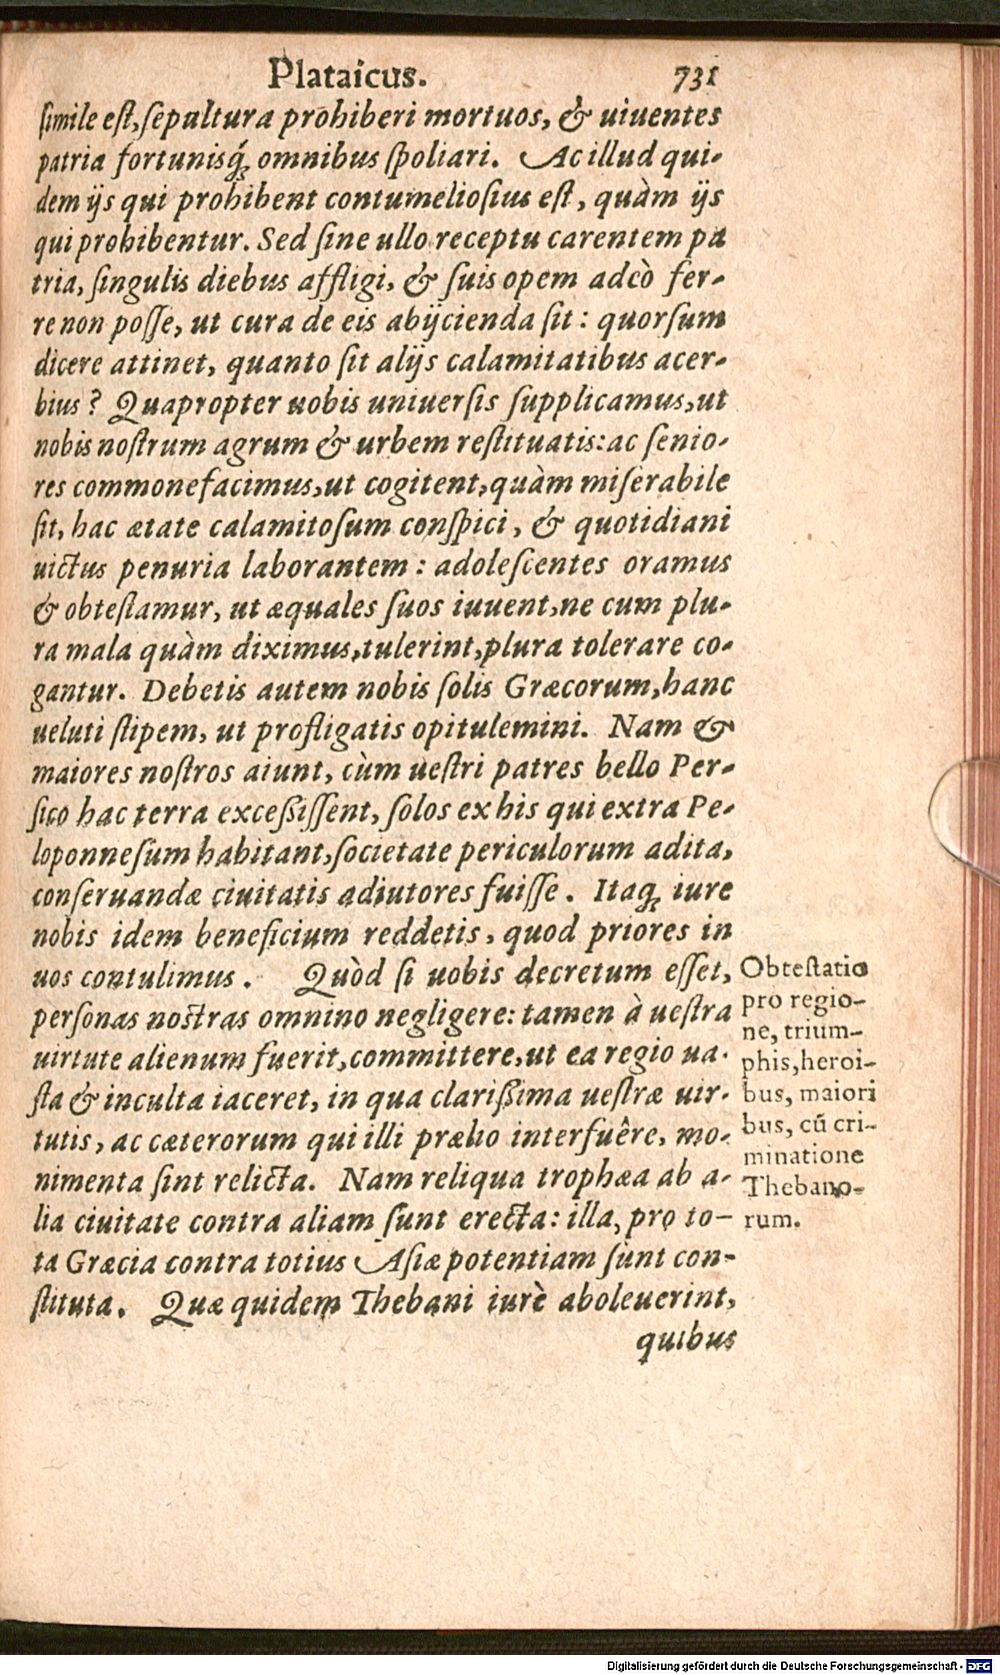 Plataicus. 731
simile est, sepultura prohiberi mortuos, & uiuentes
patria fortunisq́; omnibus spoliari. Ac illud qui-
dem ijs qui prohibent contumeliosius est, quàm ijs
qui prohibentur. Sed sine ullo receptu carentem pa
tria, singulis diebus affligi, & suis opem adeò fer-
re non posse, ut cura de eis abijcienda sit: quorsum
dicere attinet, quanto sit alijs calamitatibus acer-
bius? Quapropter uobis uniuersis supplicamus, ut
nobis nostrum agrum & urbem restituatis: ac senio-
res commonefacimus, ut cogitent, quàm miserabile
sit, hac ætate calamitosum conspici, & quotidiani
uictus penuria laborantem: adolescentes oramus
& obtestamur, ut æquales suos iuuent, ne cum plu-
ra mala quàm diximus, tulerint, plura tolerare co-
gantur. Debetis autem nobis solis Græcorum, hanc
ueluti stipem, ut profligatis opitulemini. Nam &
maiores nostros aiunt, cùm uestri patres bello Per-
sico hac terra excessissent, solos ex his qui extra Pe-
loponnesum habitant, societate periculorum adita,
conseruandæ ciuitatis adiutores fuisse. Itaq; iure
nobis idem beneficium reddetis, quod priores in
uos contulimus. Quòd si uobis decretum esset,
personas nostras omnino negligere: tamen à uestra
uirtute alienum fuerit, committere, ut ea regio ua-
sta & inculta iaceret, in qua clarissima uestræ uir-
tutis, ac cæterorum qui illi prælio interfuêre, mo-
nimenta sint relicta. Nam reliqua trophæa ab a-
lia ciuitate contra aliam sunt erecta: illa, pro to-
ta Græcia contra totius Asiæ potentiam sunt con-
stituta. Quæ quidem Thebani iurè aboleuerint,
quibus
Obtestatio
pro regio-
ne, trium-
phis, heroi-
bus, maiori
bus, cũ cri-
minatione
Thebano-
rum.
Digitalisierung gefördert durch die Deutsche Forschungsgemeinschaft - DFG